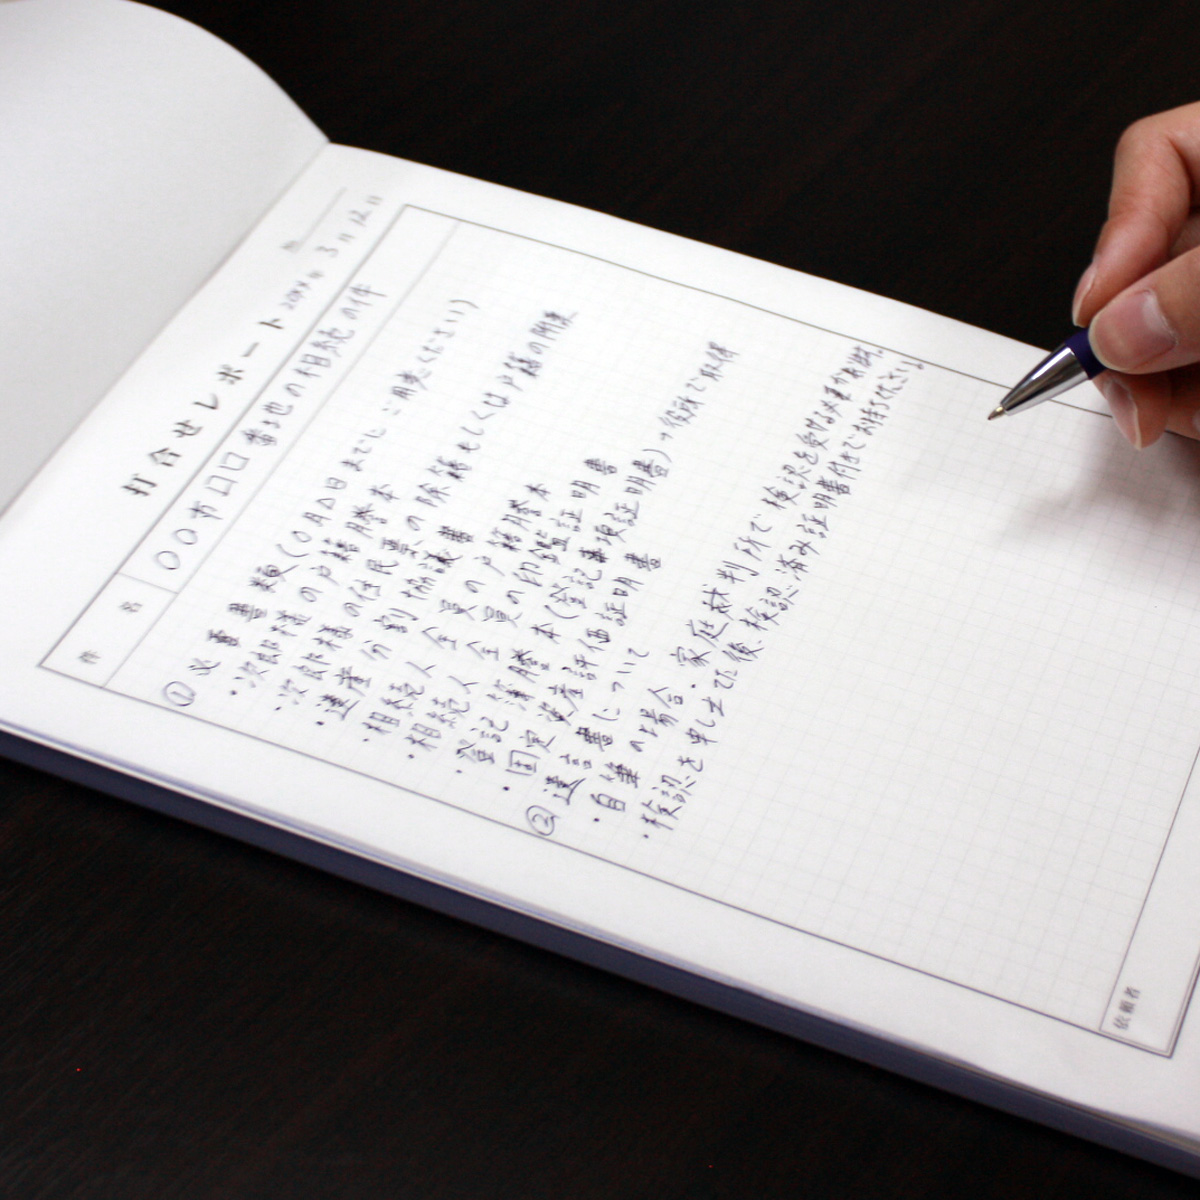 打合せレポート
No.
20XX年 3月 12日
件 名 〇〇市口口番地の相続の件
① 必要書類(〇月△日までにご用意ください)
・次郎様の戸籍謄本
・次郎様の住民票の除籍もしくは戸籍の附票
・遺産分割協議書
・相続人全員の戸籍謄本
・相続人全員の印鑑証明書
・登記簿謄本(登記事項証明書)→役所で取得
・固定資産評価証明書
② 遺言書について
・自筆の場合、家庭裁判所で検認を受ける必要が
・検認を申し立てた後、検認済み証明書付きでお持ちください。
依頼者